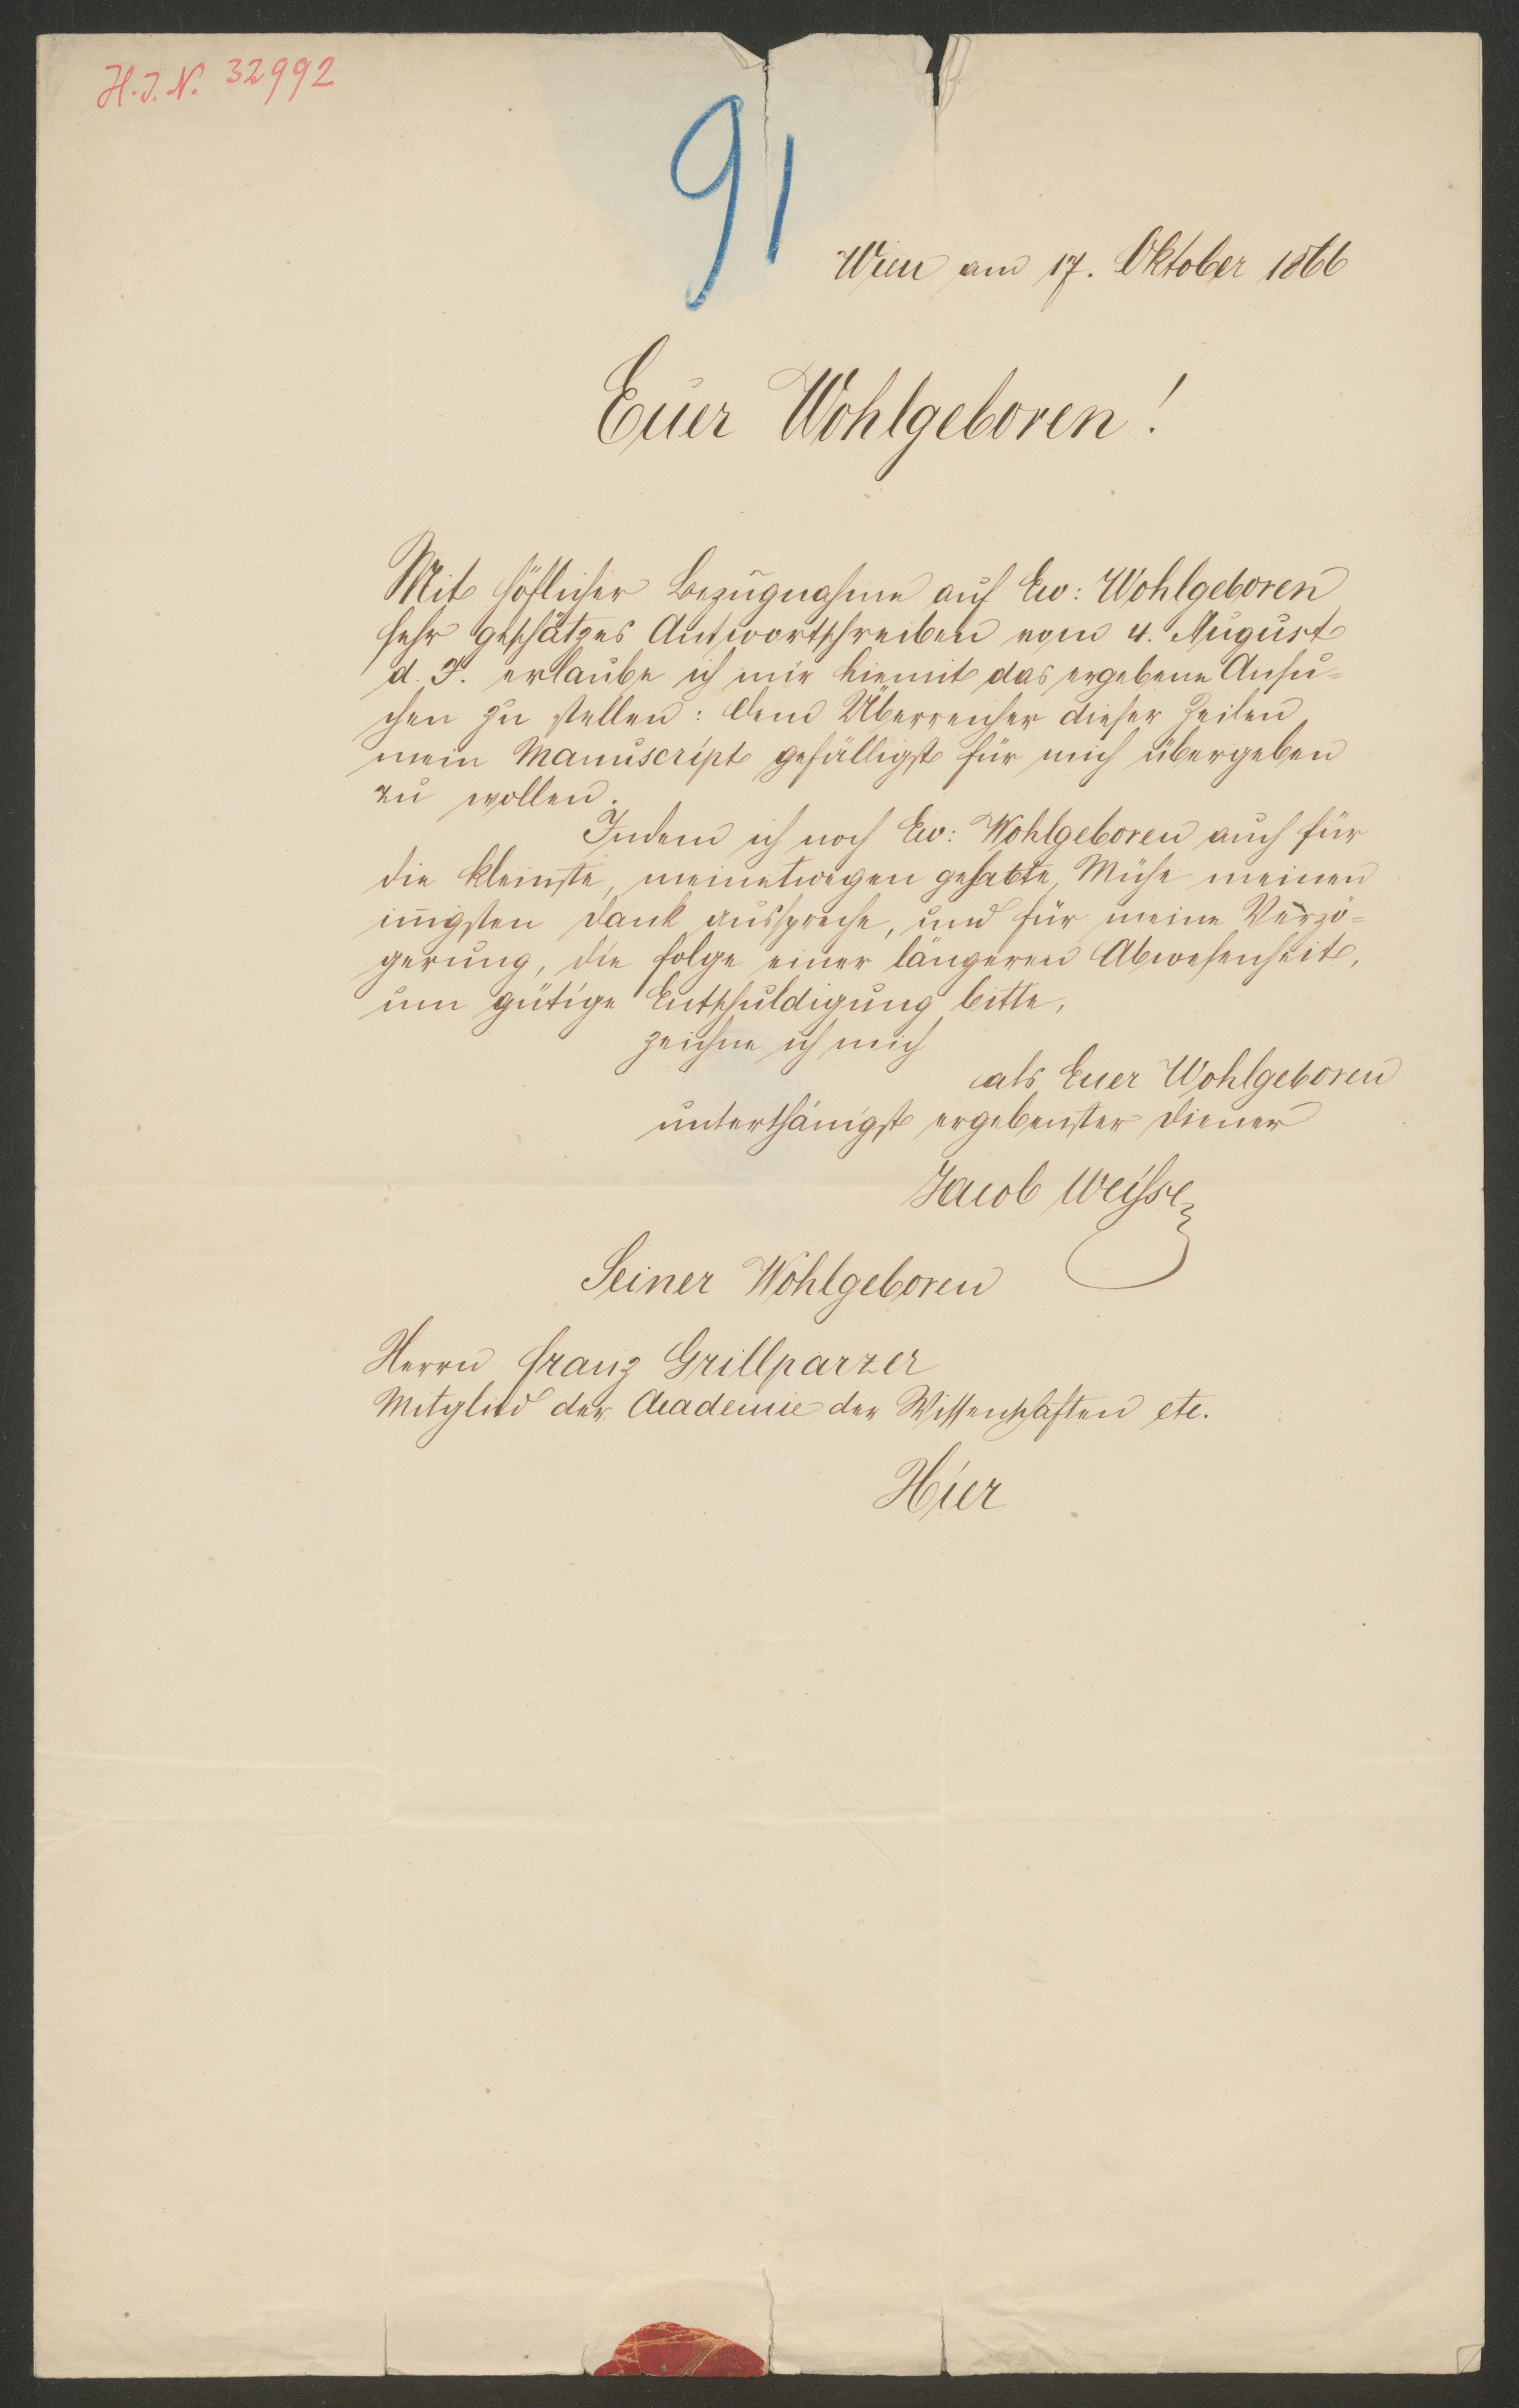 H.I.N. 32992
91
Wien am 17. Oktober 1866
Euer Wohlgeboren!
Mit höflicher Bezugnahme auf Ew: Wohlgeboren
sehr geschätzes Antwortschreiben vom 4. August
d. J. erlaube ich mir hiemit das ergebene Ansu=
chen zu stellen: dem Überreicher dieser Zeilen
mein Manuscript gefälligst für mich übergeben
zu wollen.
Indem ich noch Ew: Wohlgeboren auch für
die kleinste, meinetwegen gehabte, Mühe meinen
iñigsten Dank ausspreche, und für meine Verzö=
gerung, die Folge einer längeren Abwesenheit,
um gütige Entschuldigung bitte,
zeichne ich mich
als Euer Wohlgeboren
unterthänigst ergebenster Diener
Jacob Weisse
Seiner Wohlgeboren
Herrn Franz Grillparzer
Mitglied der Academie der Wissenschaften etc.
Hier